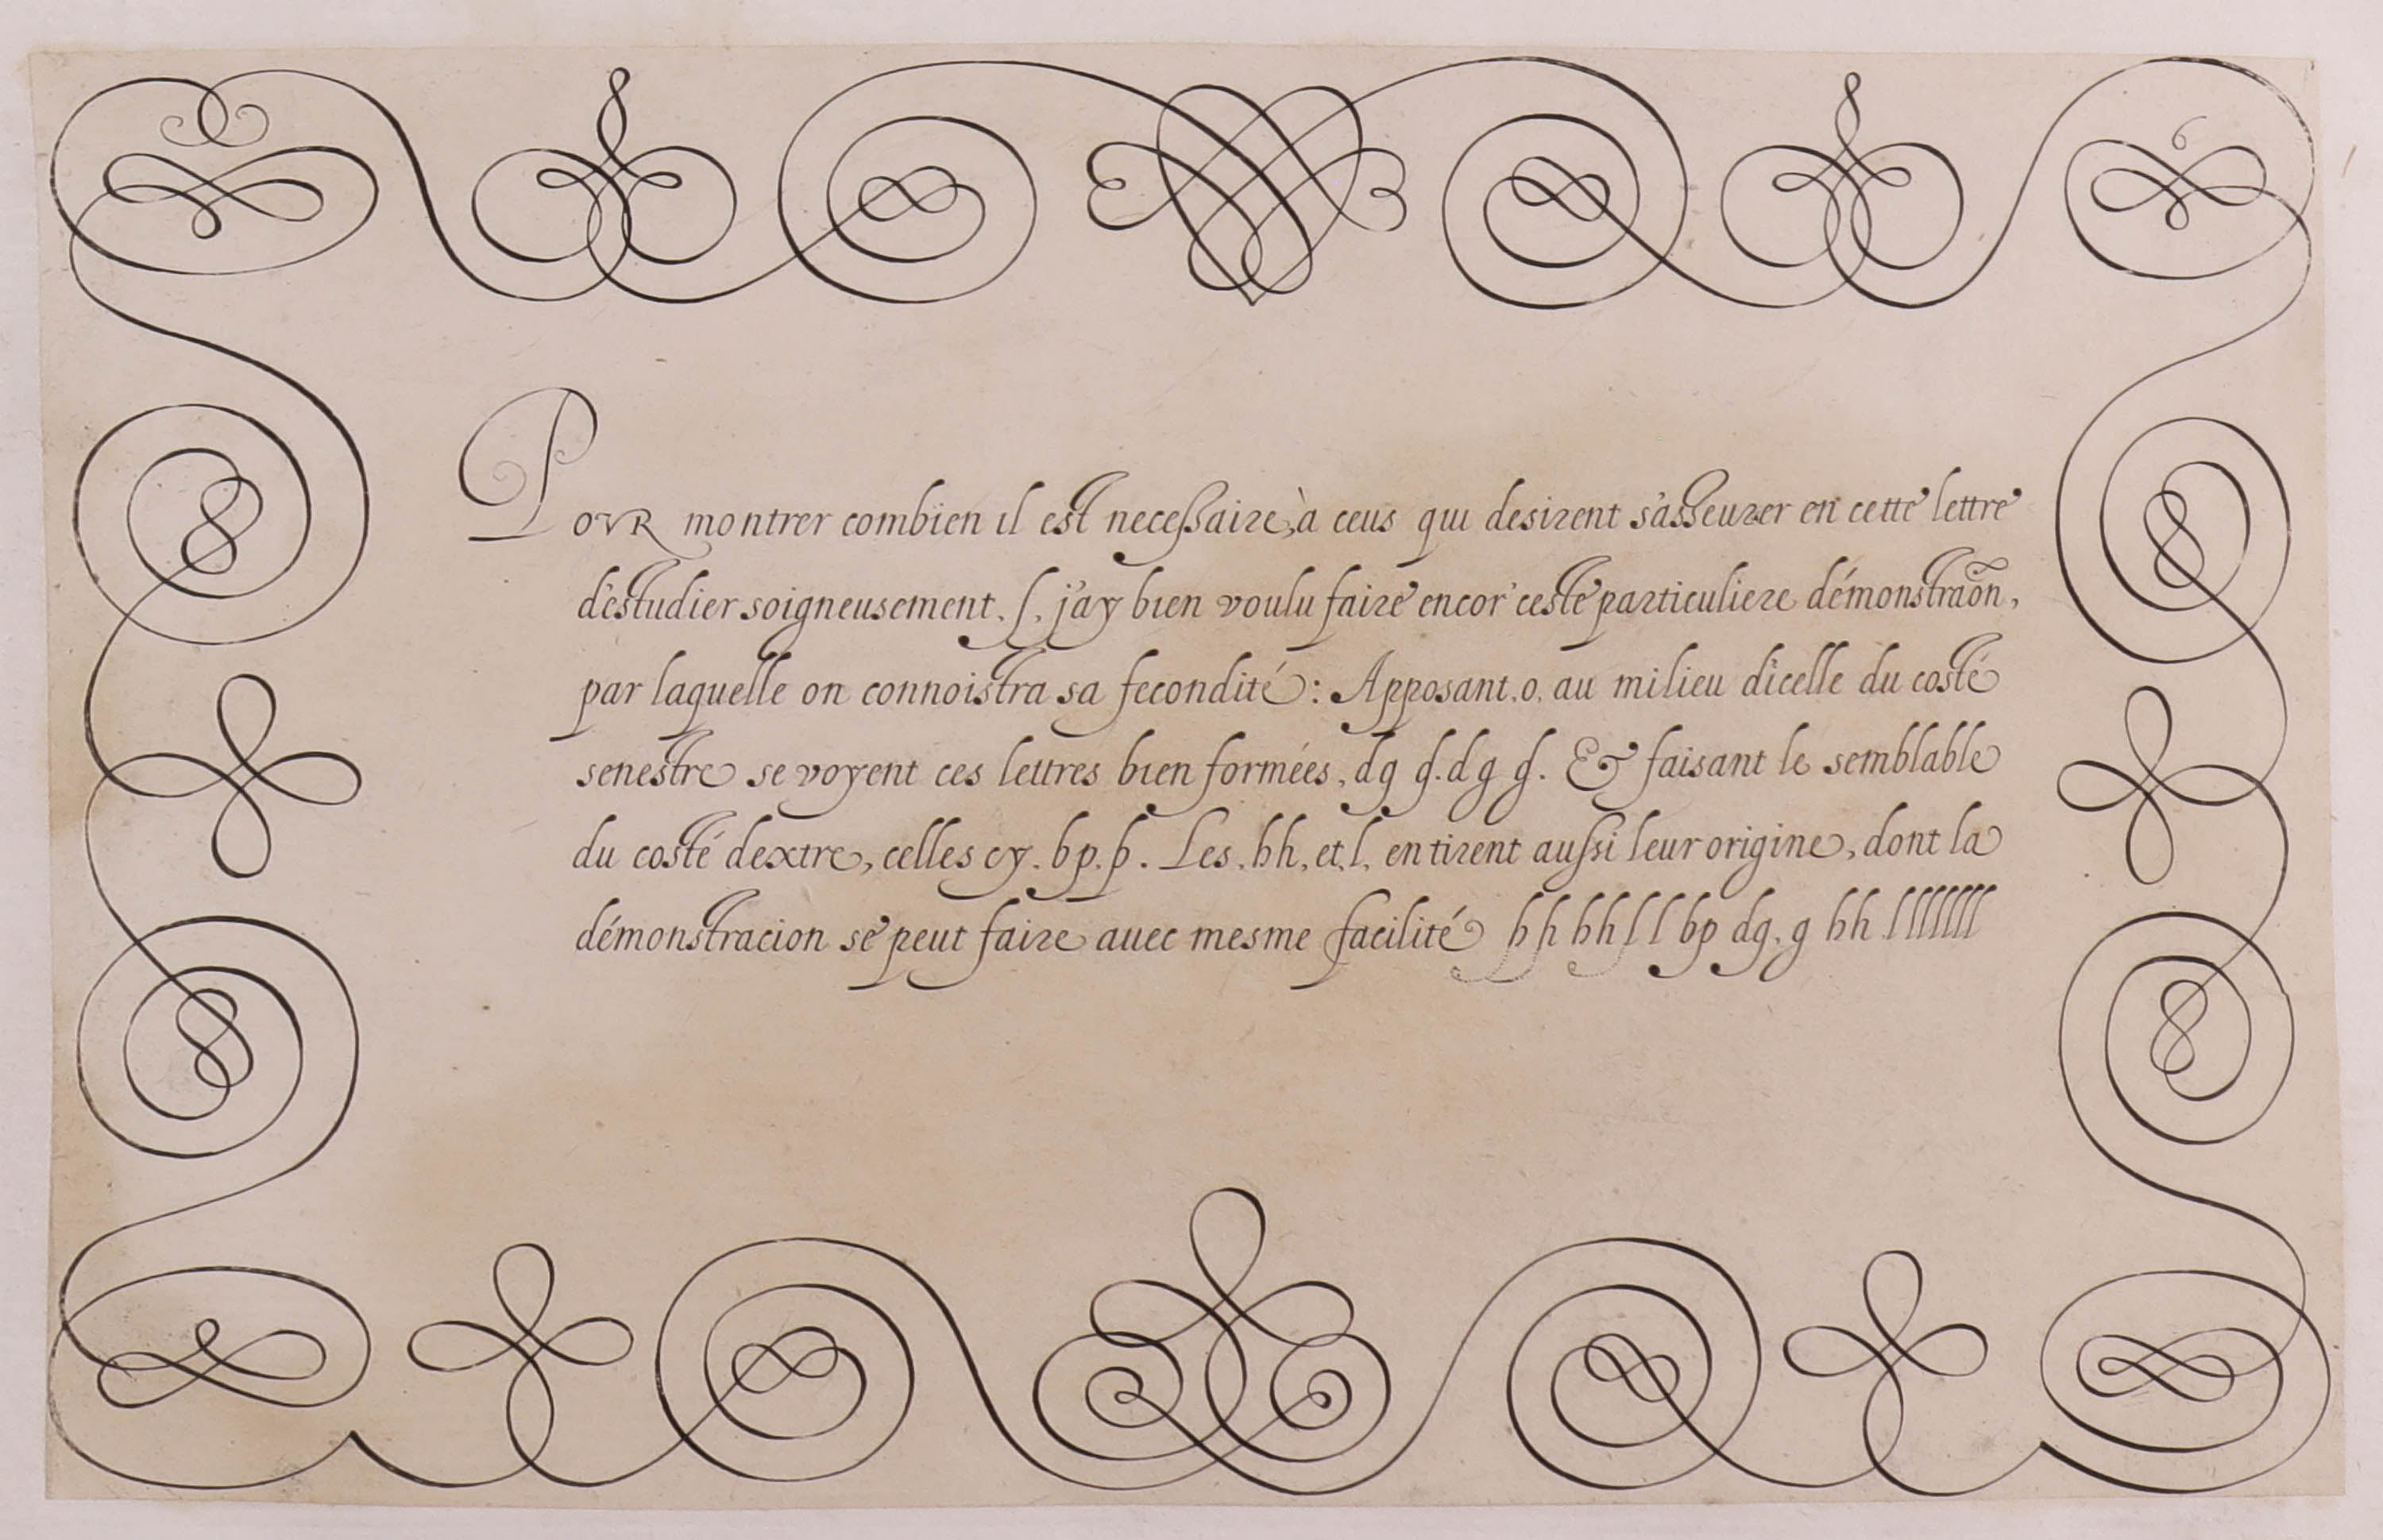 POVR montrer combien il est necessaire, à ceus qui desirent s'asseurer en cette lettre
d'estudier soigneusement. ſ. j'ay bien voulu faire encor' ceste particuliere démonstraõn,
par laquelle on connoistra sa fecondité: Apposant .o. au milieu d'icelle du costé
senestre se voyent ces lettres bien formées, dg q. dg q. Et faisant le semblable
du costé dextre, celles cy. bp. þ. Les .bh, et, l, en tirent aussi leur origine, dont la
démonstracion se peut faire auec mesme facilité bh bh ſ l bp dg. g bh lllllll